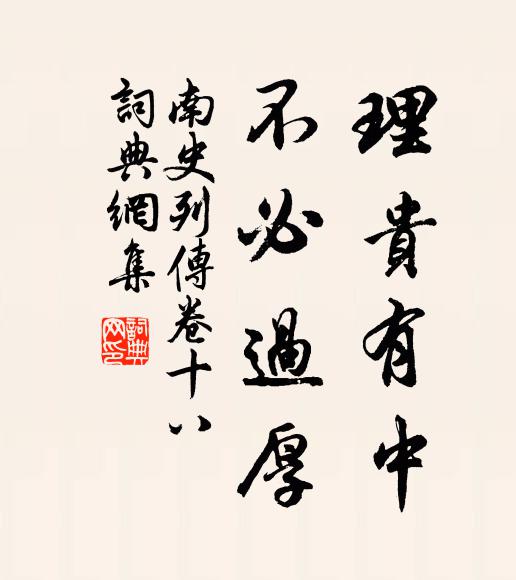 理貴有中
不必過厚
南史列傳卷十八
詞典網集
詞典
网印